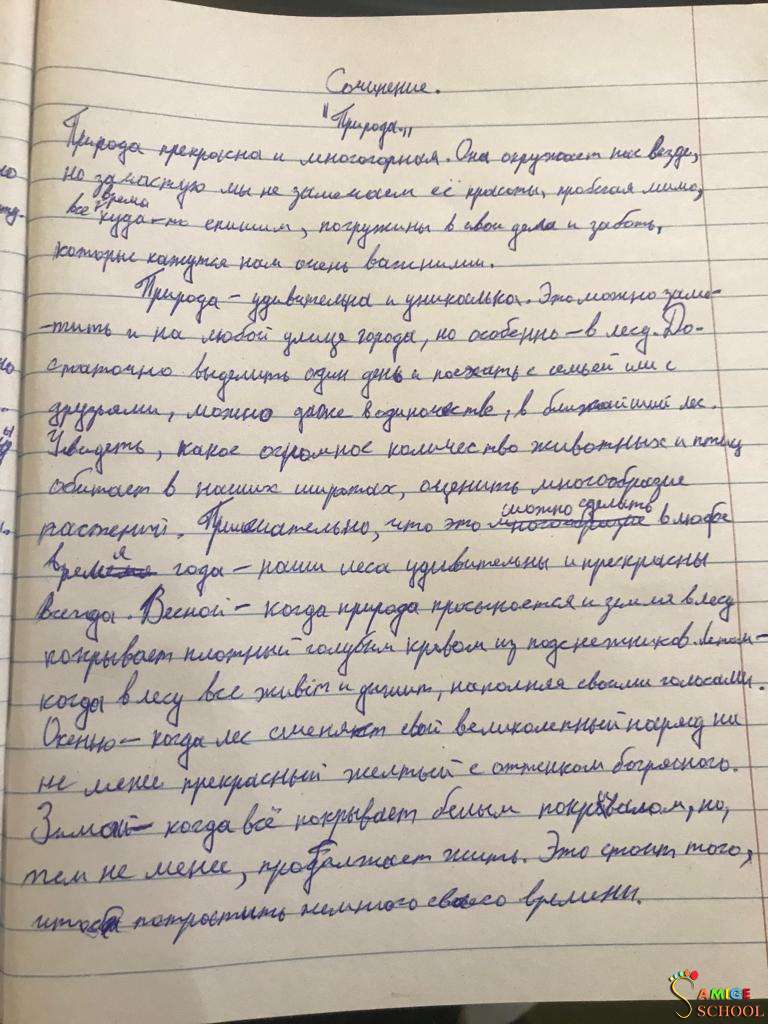 Сочинение.
"Природа."
Природа прекрасна и многогорная. Она окружает нас везде,
но зачастую мы не замечаем её красоты, пробегая мимо,
всё время куда-то спишим, погружины в свои дела и заботы,
которые кажутся нам очень важними.
Природа - удивительна и уникальна. Это можно заме-
-тить и на любой улице города, но особенно - в лесу. До-
статочно выделить один день и поехать с семьей или с
друзьями, можно даже в одиночестве, в ближайший лес.
Увидеть, какое огромное количество животных и птиц
обитает в наших широтах, оценить многообразие
растений. Примечательно, что это можно сделать в любое
время года - наши леса удивительны и прекрасны
всегда. Весной - когда природа просыпается и земля в лесу
покрывает плотный голубым кровом из подснежников. Летом -
когда в лесу все живёт и дышит, наполняя своими голосами.
Осенью - когда лес сменяет свой великолепный наряд на
не менее прекрасный желтый с оттенком богряного.
Зимой - когда всё покрывает белым покрывалом, но,
тем не менее, продолжает жить. Это стоит того,
чтобы потратить немного своего времени.
SAMIGE
SCHOOL